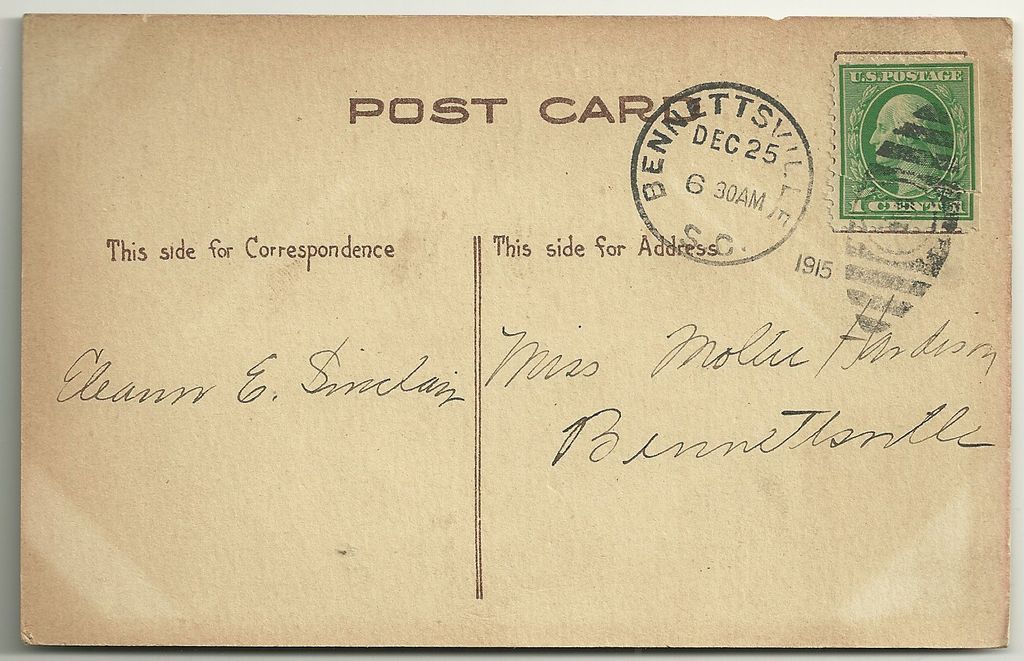 POST CARD
BENNETTSVILLE
DEC 25
6 30AM
S.C.
1915
U.S. POSTAGE
1 CENT 1
This side for Correspondence
This side for Address
Eleanor E. Sinclair
Miss Mollie Hardison
Bennettsville